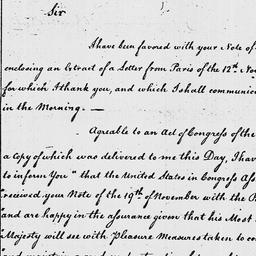 Sir
I have been favored with your Note of
enclosing an Extract of a Letter from Paris of the 12th. No
for which I thank you, and which I shall communic
in the Morning. —
Agreable to an Act of Congress of the
a Copy of which was delivered to me this Day, I have
to inform You " that the United States in Congress Ass
"received your Note of the 19th of November with the P
and are happy in the assurance given that his Most
Majesty will see with Pleasure Measures taken to co